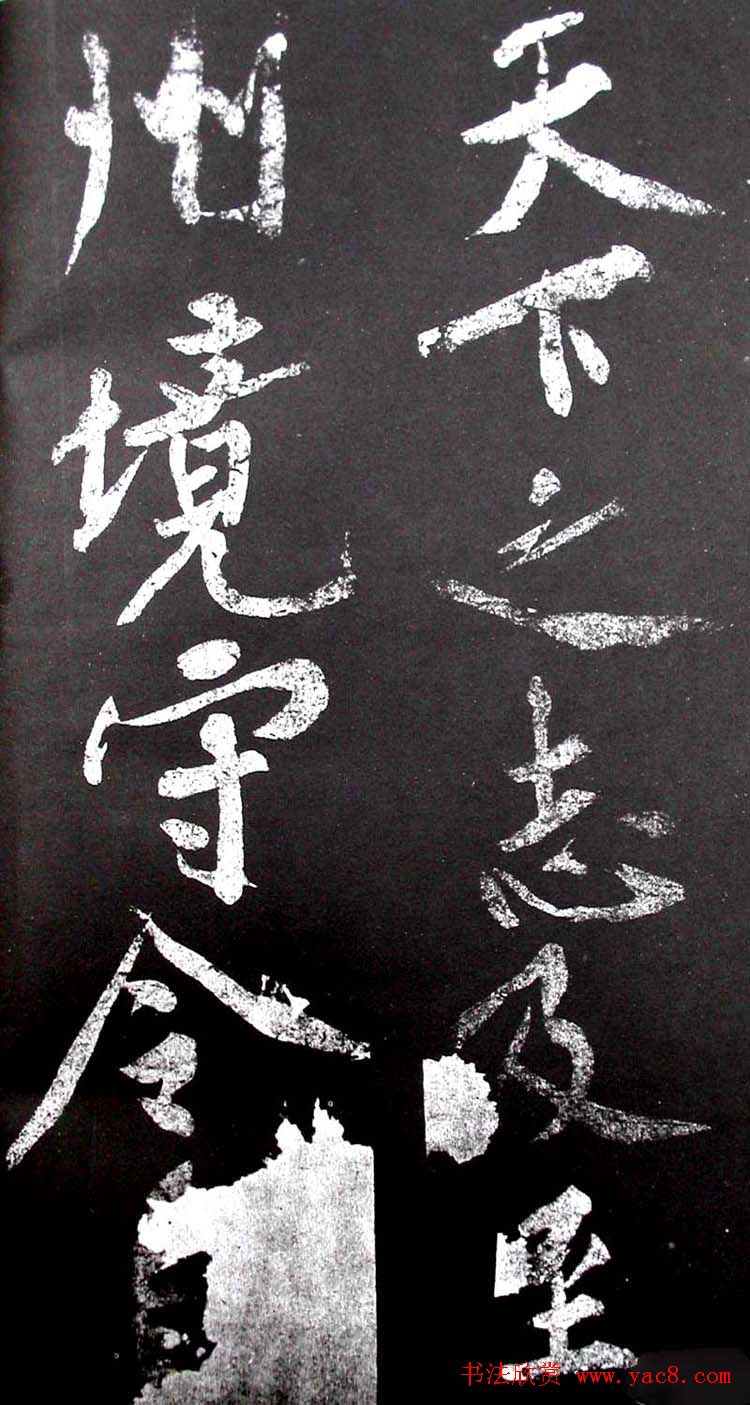 天下之志及至
州境守令
书法欣赏 www.yac8.com